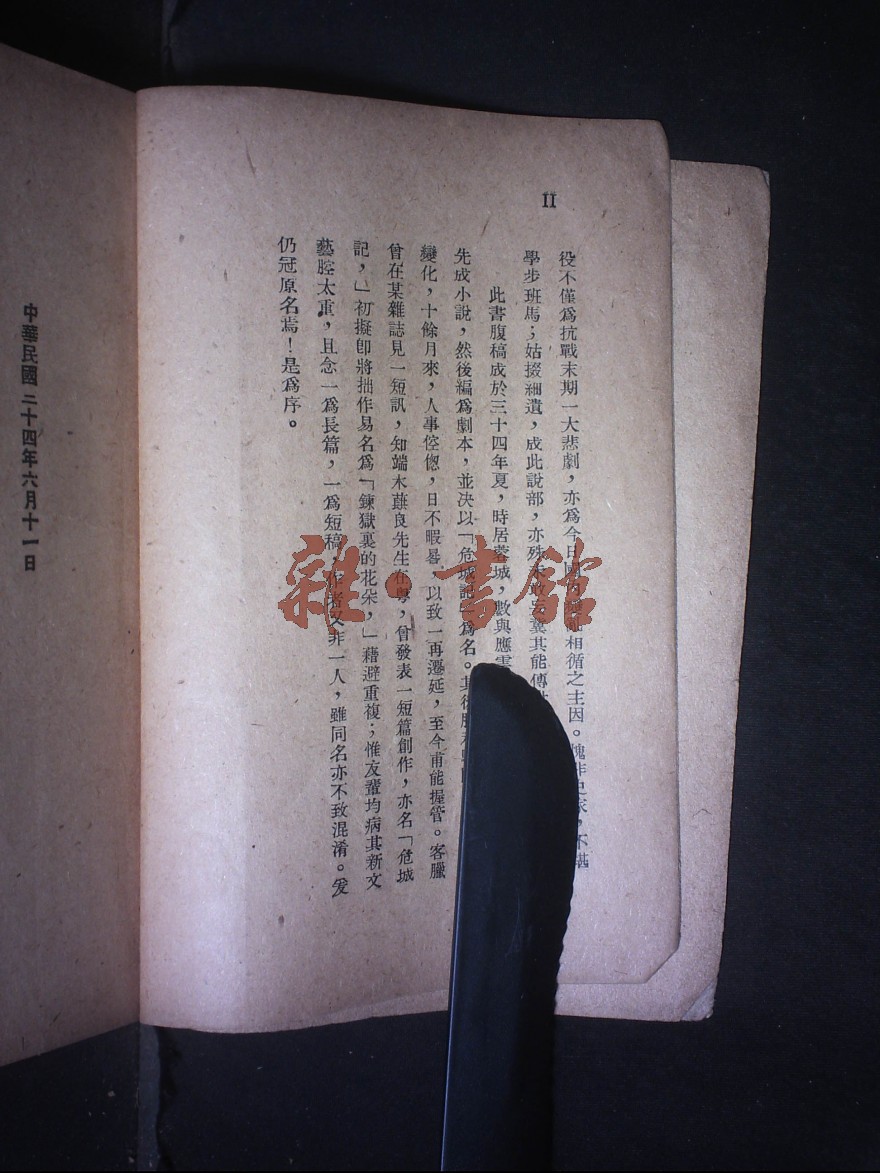 II
役不僅爲抗戰末期一大悲劇，亦爲今日國內相循之主因。愧非史家，不堪
學步班馬；姑掇細遺，成此說部，亦殊未敢妄冀其能傳
此書腹稿成於三十四年夏，時居蓉城，數與應雲
先成小說，然後編爲劇本，並決以「危城記」爲名。其後
變化，十餘月來，人事倥傯，日不暇晷，以致一再遷延，至今甫能握管。客臘
曾在某雜誌見一短訊，知端木蕻良先生在粵，曾發表一短篇創作，亦名「危城
記，」初擬卽將拙作易名爲「鍊獄裏的花朵，」藉避重複；惟友輩均病其新文
藝腔太重，且念一爲長篇，一爲短稿，作者又非一人，雖同名亦不致混淆。爰
仍冠原名焉！是爲序。
中華民國二十四年六月十一日
雜·書館